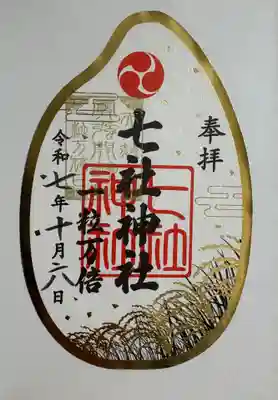 奉拝
七社神社
一粒万倍
令和七年十月二八日
七社
神社